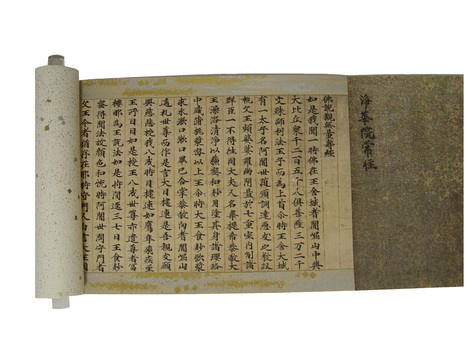 淨華院常住
佛說觀無量壽經
如是我聞一時佛在王舍城耆闍崛山中與
大比丘衆千二百五十人俱菩薩三万二千
文殊師利法王子而爲上首尒時王舍大城
有一太子名阿闍世随順調達惡友之教收
執父王頻婆娑羅幽閉置於七重室内制諸
群臣一不得往國大夫人名韋提希恭敬大
王澡浴清淨以蘇蜜和麨用塗其身諸瓔珞
中盛蒲萄漿密以上王尒時大王食麨飲漿
求水漱口漱口畢已合掌恭敬向耆闍崛山
遥礼世尊而作是言大目揵連是吾親友願
興慈悲授我八戒時目揵連如鷹隼飛疾至
王所日日如是授王八戒世尊亦遣尊者富
樓那爲王說法如是時間逕三七日王食麨
蜜得聞法故顏色和悅時阿闍世問守門者
父王今者猶存在耶時守門人白言大王國